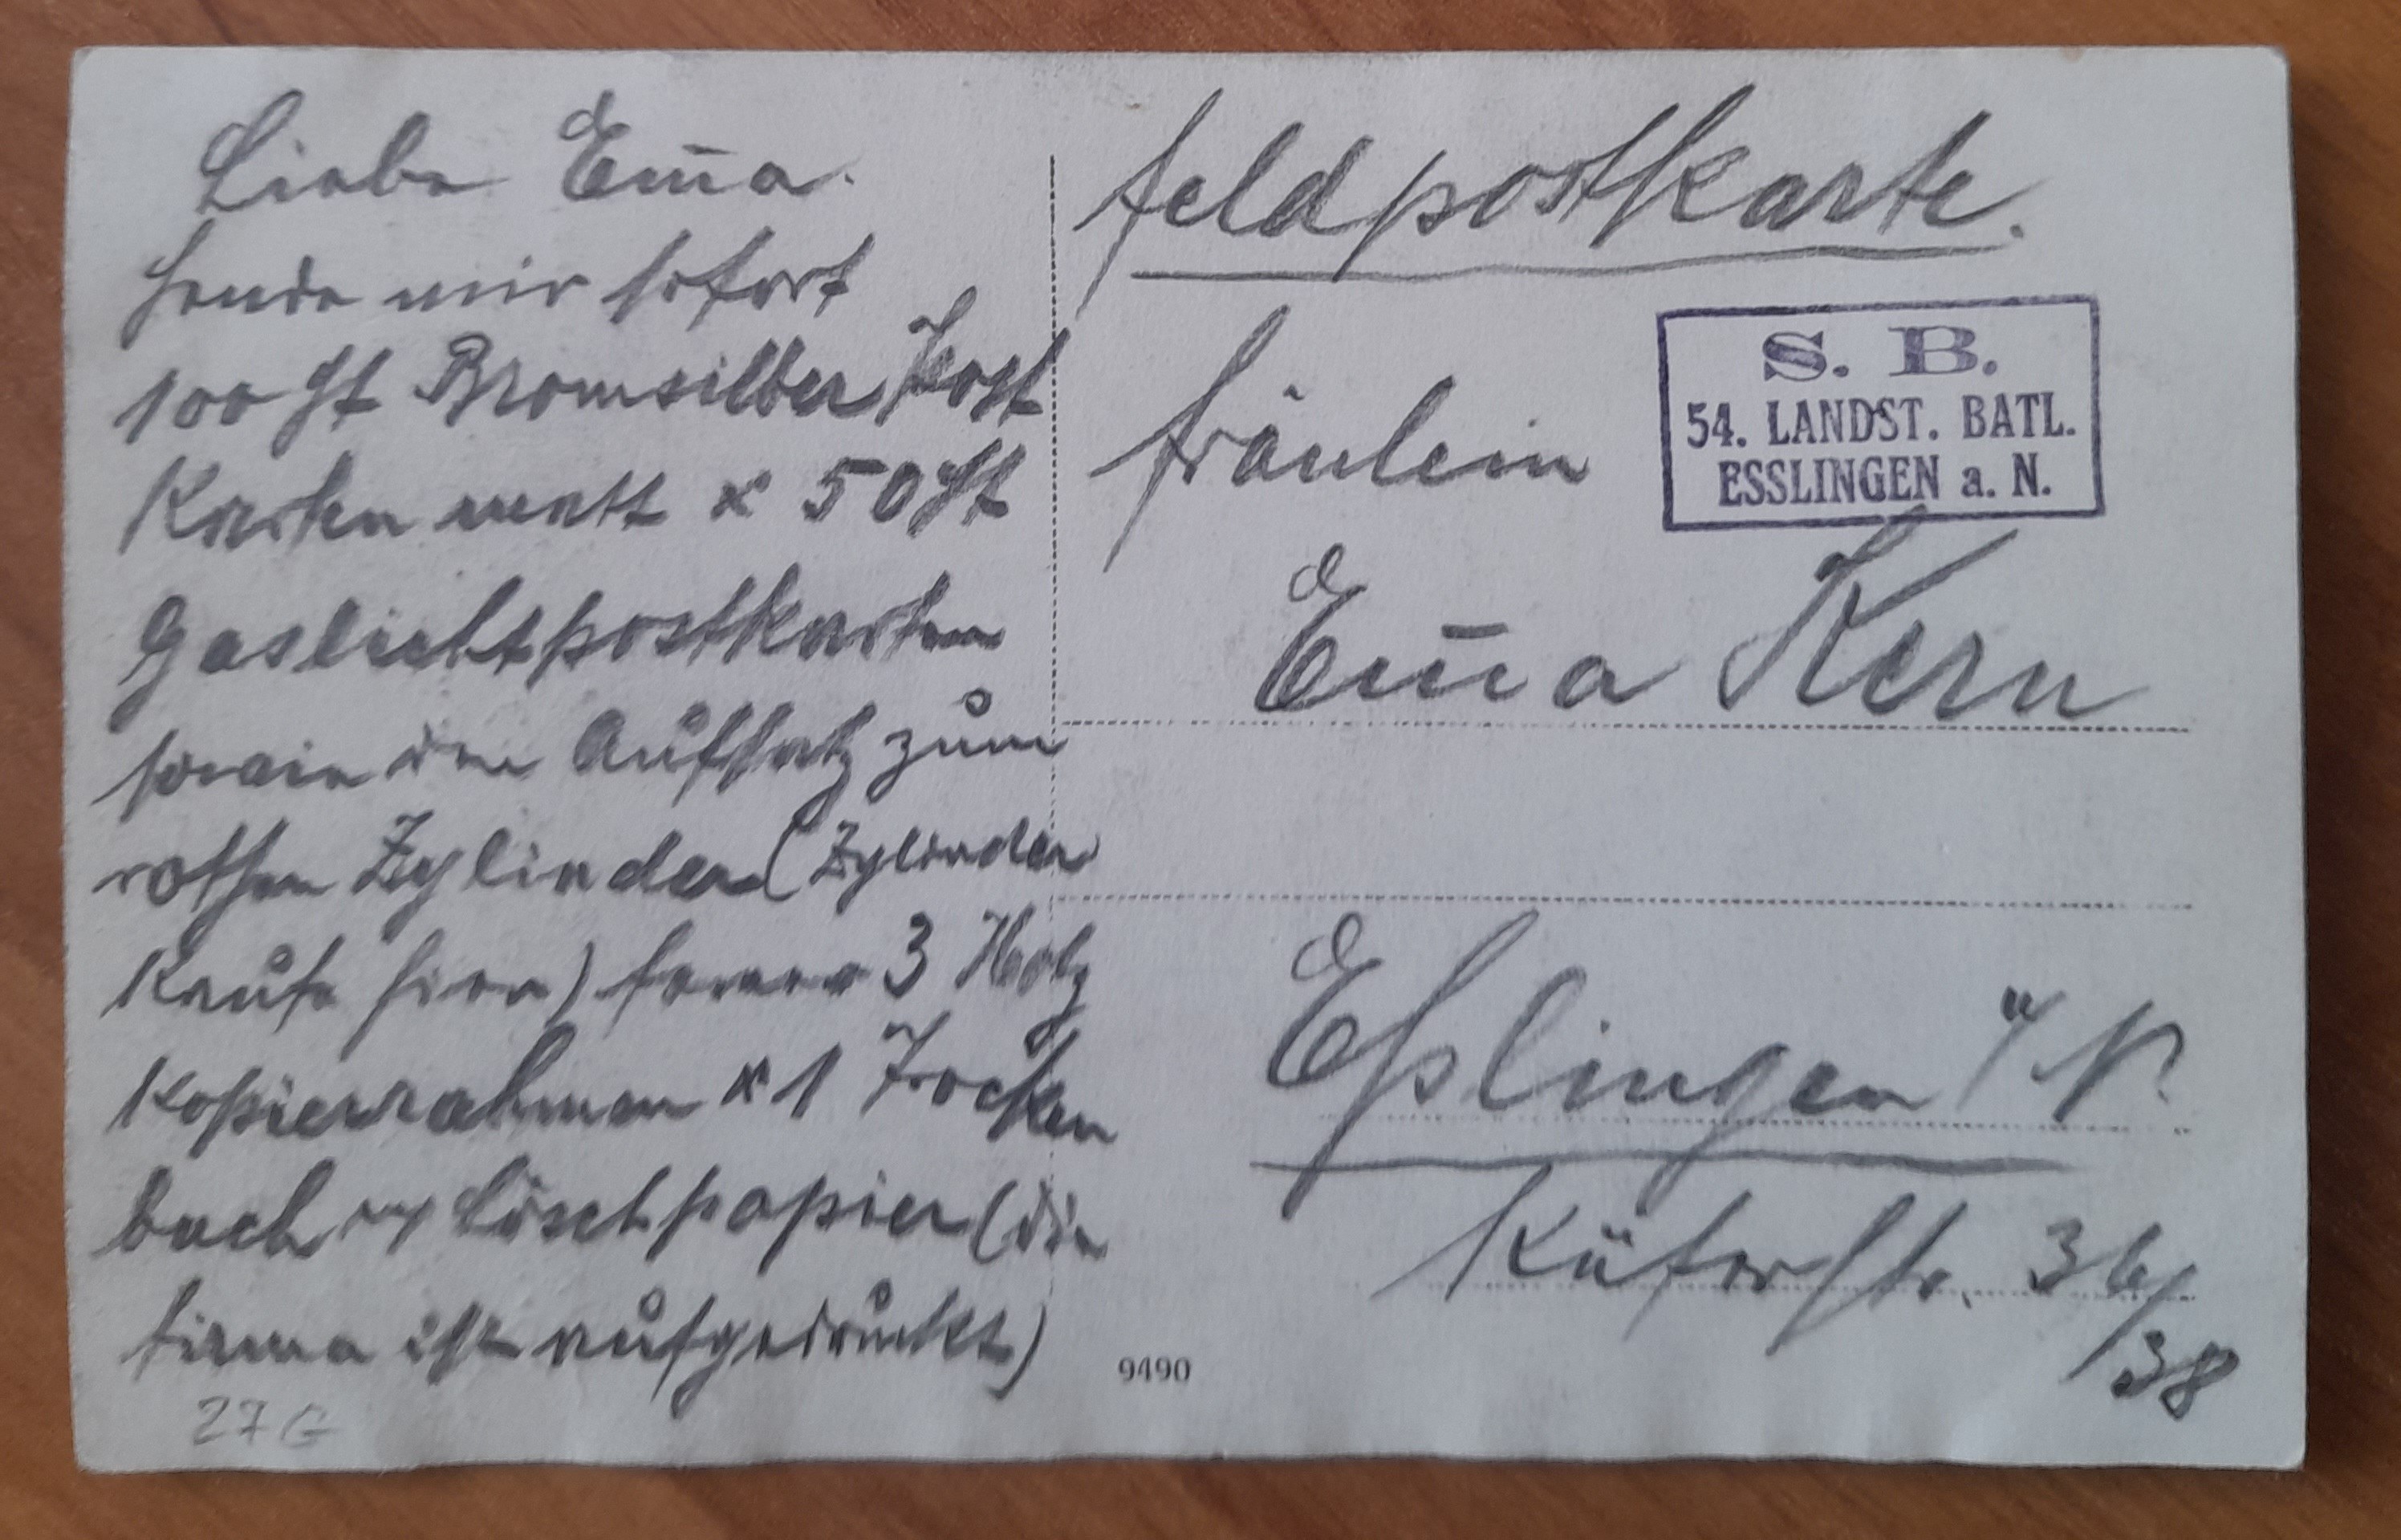 Liebe Em̄a.
Sende mir sofort
100 St Bromsilber Post
Karten matt & 50 St
Gaslichtpostkarten
sowie den Aufsatz zum
rothen Zylinder (Zylinder
kaufe hier) ferner 3 Holz
Kopierrahmen & 1 Trocken
buch Löschpapier (die
Firma ist aufgedruckt)
27 G
Feldpostkarte.
Fräulein
S. B.
54. LANDST. BATL.
ESSLINGEN a. N.
Em̄a Kern
Eßlingen a/N.
Küferstr. 36/
38
9490